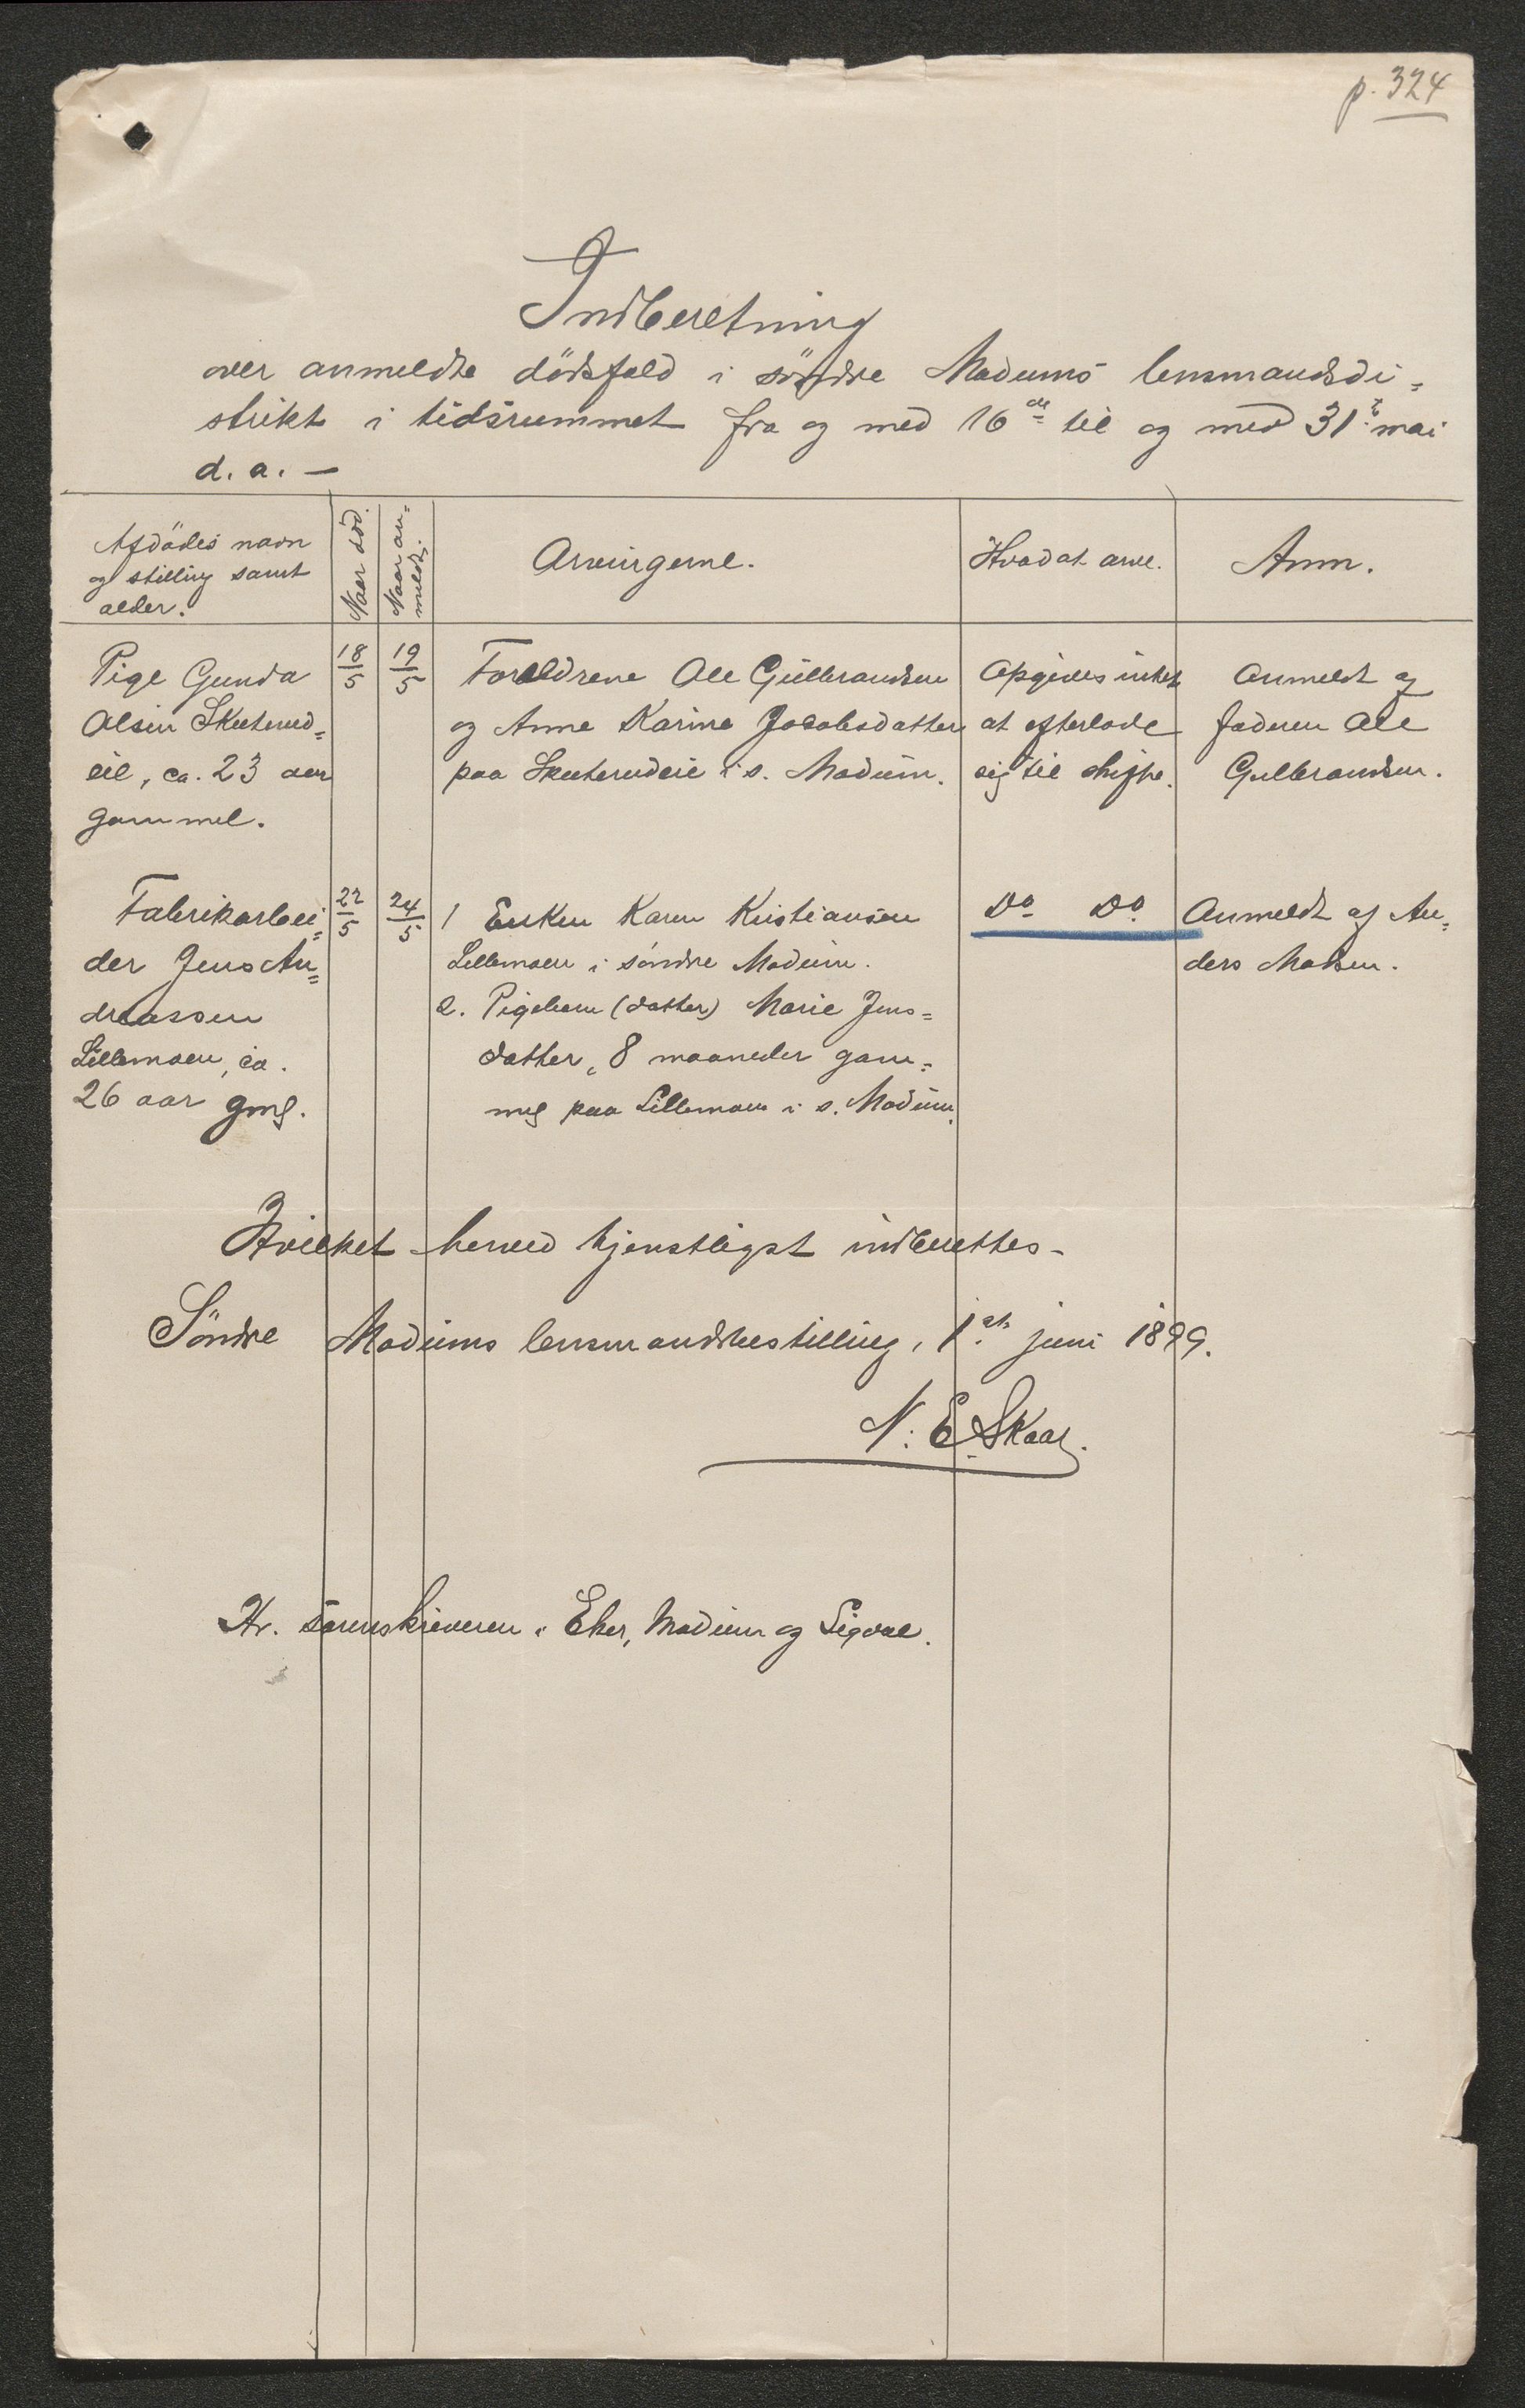 p. 324
Indberetning
over anmeldte dödsfald i söndre Modums lensmandsdi=
strikt i tidsrummet fra og med 16de til og med 31te mai
d. a. —
Afdödes navn
og stilling samt
alder.
Naar död.
Naar an=
meldt.
Arvingerne.
Hvad at arve.
Anm.
Pige Gunda
Olsen Skuterud=
eie, ca. 23 aar
gammel.
18/5
19/5
Forældrene Ole Gulbrandsen
og Anne Karine Jacobsdatter
paa Skuterudeie i s. Modum.
Opgives intet
at efterlade
sig til skifte.
Anmeldt af
faderen Ole
Gulbrandsen.
Fabrikarbei=
der Jens An=
dreassen
Lillemoen, ca.
26 aar gml.
22/5
24/5
1 Enken Karen Kristiansen
Lillemoen i söndre Modum.
2. Pigebarn (datter) Marie Jens=
datter, 8 maaneder gam=
mel paa Lillemoen i s. Modum.
Do Do
Anmeldt af An=
ders Madsen.
Hvilket herved tjenstligst indberettes -
Söndre Modums lensmandsbestilling, 1ste juni 1899.
N. E. Skaar.
Hr. sorenskriveren i Eker, Modum og Sigdal.